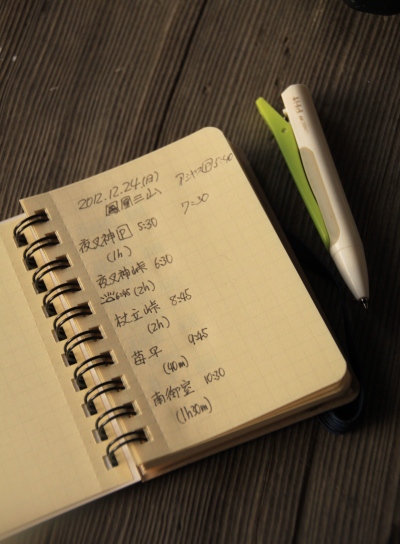 2012.12.24(月)
鳳凰三山
7:30
夜叉神P 5:30
(1h)
夜叉神峠 6:30
(2h)
杖立峠 8:45
(2h)
苺平 9:45
(40m)
南御室 10:30
(1h30m)